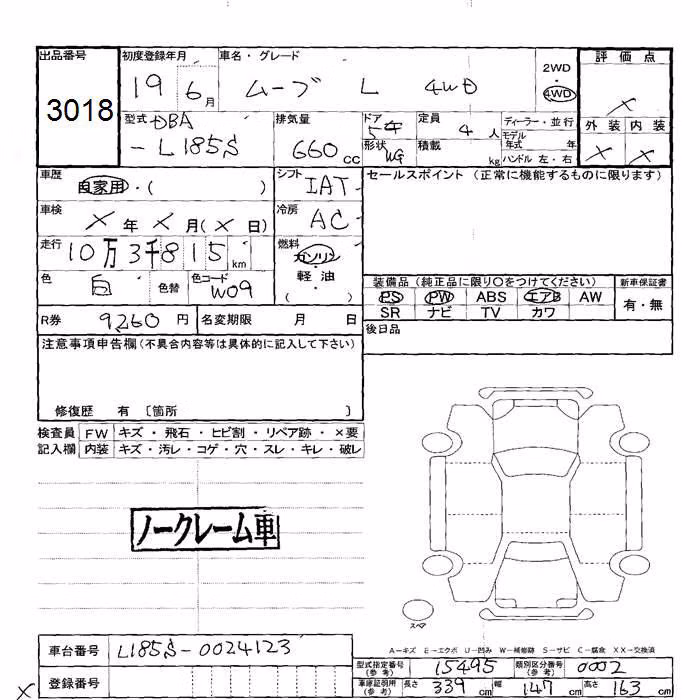 出品番号 初度登録年月 車名・グレード 評価点
3018 19 6月 ムーブ L 4WD 2WD 4WD ×
型式 DBA 排気量 ドア 5 定員 4人 ディーラー・並行 外装 内装
-L185S 660cc 形状 WG 積載 kg モデル年式 年 ハンドル 左・右 × ×
車歴 自家用・( ) シフト IAT セールスポイント (正常に機能するものに限ります)
車検 ×年 ×月(×日) 冷房 AC
走行 10万3千815km 燃料 ガソリン・軽油( )
色 白 色替 色コード W09 装備品 (純正品に限り〇をつけてください) 新車保証書
PS PW ABS エアB AW 有・無
SR ナビ TV カワ
R券 9260円 名変期限 月 日 後日品
注意事項申告欄(不具合内容等は具体的に記入して下さい)
修復歴 有 〔箇所 〕
検査員 FW キズ・飛石・ヒビ割・リペア跡・×要
記入欄 内装 キズ・汚レ・コゲ・穴・スレ・キレ・破レ
ノークレーム車
スペア
A-キズ E-エクボ U-凹み W-補修跡 S-サビ C-腐食 XX-交換済
車台番号 L185S-0024123 型式指定番号(参考) 15495 類別区分番号(参考) 0002
× 登録番号 車庫証明用(参考) 長さ 339cm 幅 147cm 高さ 163cm